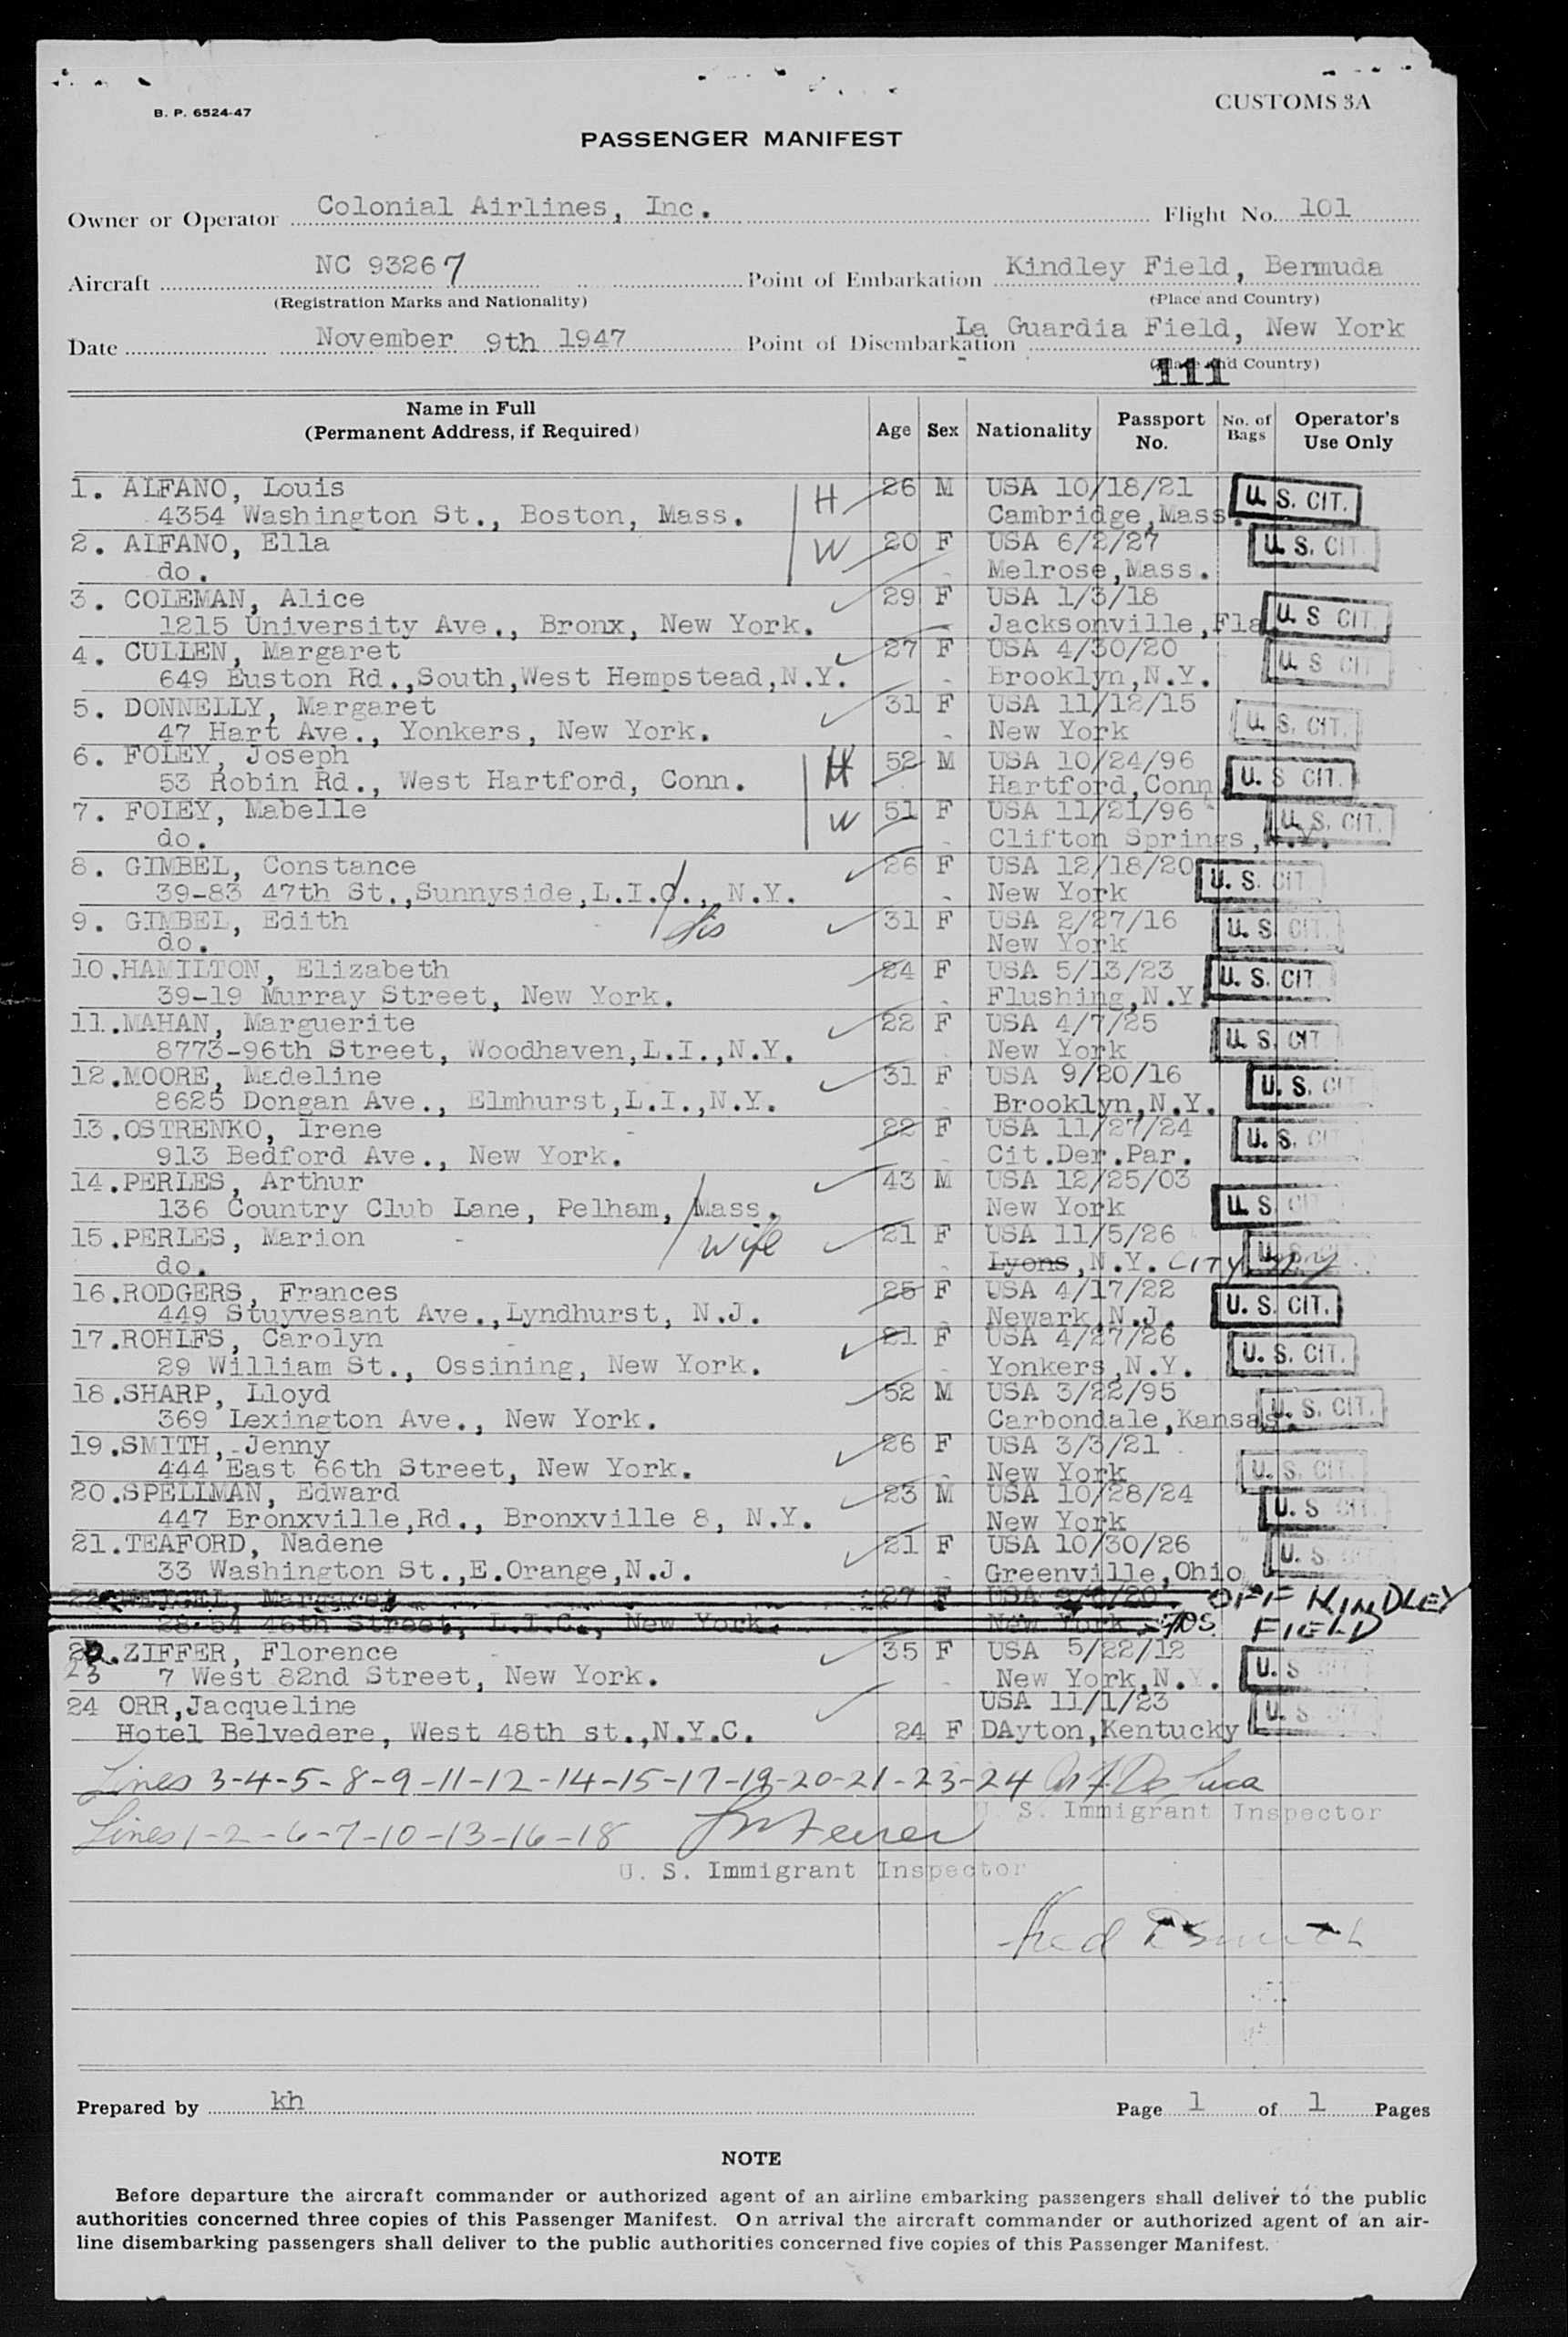 B. P. 6524-47
CUSTOMS 3A
PASSENGER MANIFEST
Owner or Operator Colonial Airlines, Inc. Flight No. 101
Aircraft NC 93267 Point of Embarkation Kindley Field, Bermuda
(Registration Marks and Nationality) (Place and Country)
Date November 9th 1947 Point of Disembarkation La Guardia Field, New York
111 and Country)
Name in Full
(Permanent Address, if Required) Age Sex Nationality Passport No. No. of Bags Operator's Use Only
1. ALFANO, Louis H 26 M USA 10/18/21 U. S. CIT.
4354 Washington St., Boston, Mass. Cambridge,Mass.
2. ALFANO, Ella W 20 F USA 6/2/27 U. S. CIT.
do. Melrose,Mass.
3. COLEMAN, Alice 29 F USA 1/3/18
1215 University Ave., Bronx, New York. Jacksonville,Fla U. S CIT.
4. CULLEN, Margaret 27 F USA 4/30/20
649 Euston Rd.,South,West Hempstead,N.Y. Brooklyn,N.Y. U. S CIT
5. DONNELLY, Margaret 31 F USA 11/12/15
47 Hart Ave., Yonkers, New York. New York U. S. CIT.
6. FOLEY, Joseph H 52 M USA 10/24/96
53 Robin Rd., West Hartford, Conn. Hartford,Conn U. S CIT.
7. FOLEY, Mabelle W 51 F USA 11/21/96
do. Clifton Springs,N.Y. U. S. CIT.
8. GIMBEL, Constance 26 F USA 12/18/20
39-83 47th St.,Sunnyside,L.I.C., N.Y. New York U. S. CIT
9. GIMBEL, Edith Sis 31 F USA 2/27/16
do. New York U. S. CIT.
10.HAMILTON, Elizabeth 24 F USA 5/13/23
39-19 Murray Street, New York. Flushing,N.Y. U. S. CIT
11.MAHAN, Marguerite 22 F USA 4/7/25
8773-96th Street, Woodhaven,L.I.,N.Y. New York U. S. CIT
12.MOORE, Madeline 31 F USA 9/20/16
8625 Dongan Ave., Elmhurst,L.I.,N.Y. Brooklyn,N.Y. U. S. CIT
13.OSTRENKO, Irene 22 F USA 11/27/24
913 Bedford Ave., New York. Cit.Der.Par. U. S. CIT
14.PERLES, Arthur 43 M USA 12/25/03
136 Country Club Lane, Pelham, Mass. New York U. S. CIT
15.PERLES, Marion wife 21 F USA 11/5/26
do. Lyons,N.Y. CITY U. S.
16.RODGERS, Frances 25 F USA 4/17/22
449 Stuyvesant Ave.,Lyndhurst, N.J. Newark,N.J. U. S. CIT.
17.ROHLFS, Carolyn 21 F USA 4/27/26
29 William St., Ossining, New York. Yonkers,N.Y. U. S. CIT.
18.SHARP, Lloyd 52 M USA 3/22/95
369 Lexington Ave., New York. Carbondale,Kansas. U. S. CIT.
19.SMITH, Jenny 26 F USA 3/3/21
444 East 66th Street, New York. New York U. S. CIT
20.SPELLMAN, Edward 23 M USA 10/28/24
447 Bronxville,Rd., Bronxville 8, N.Y. New York U. S
21.TEAFORD, Nadene 21 F USA 10/30/26
33 Washington St.,E.Orange,N.J. Greenville,Ohio U. S.
22 Margaret 27 F USA OFF KINDLEY
28-54 46th Street, L.I.C., New York. New York FIELD
22.ZIFFER, Florence 35 F USA 5/22/12
23 7 West 82nd Street, New York. New York,N.Y. U. S
24 ORR,Jacqueline USA 11/1/23
Hotel Belvedere, West 48th st.,N.Y.C. 24 F DAyton,Kentucky U. S
Lines 3-4-5-8-9-11-12-14-15-17-19-20-21-23-24 De Luca
U. S. Immigrant Inspector
Lines 1-2-6-7-10-13-16-18
U. S. Immigrant Inspector
Fred Smith
Prepared by kh Page 1 of 1 Pages
NOTE
Before departure the aircraft commander or authorized agent of an airline embarking passengers shall deliver to the public
authorities concerned three copies of this Passenger Manifest. On arrival the aircraft commander or authorized agent of an air-
line disembarking passengers shall deliver to the public authorities concerned five copies of this Passenger Manifest.